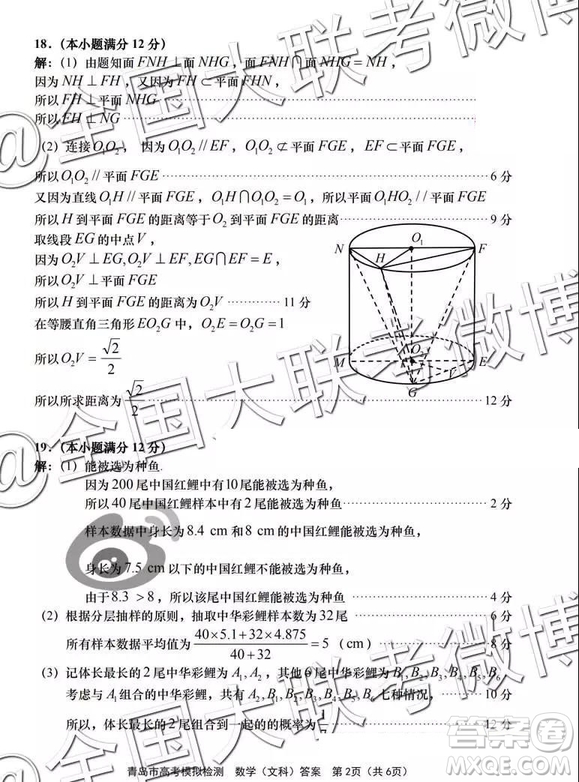 18.（本小题满分12分）
解：（1）由题知面FNH⊥面NHG，面FNH∩面NHG=NH，
因为NH⊥FH，又因为FH⊂平面FHN，
所以FH⊥平面NHG
所以FH⊥NG
（2）连接O₁O₂，因为O₁O₂//EF，O₁O₂⊄平面FGE，EF⊂平面FGE，
所以O₁O₂//平面FGE 6分
又因为直线O₁H//平面FGE，O₁H∩O₁O₂=O₁，所以平面O₁HO₂//平面FGE
所以H到平面FGE的距离等于O₂到平面FGE的距离 9分
取线段EG的中点V，
因为O₂V⊥EG,O₂V⊥EF,EG∩EF=E，
所以O₂V⊥平面FGE
所以H到平面FGE的距离为O₂V 11分
在等腰直角三角形EO₂G中，O₂E=O₂G=1
所以O₂V=√2/2
所以所求距离为√2/2 12分
N O₁ F
H
M O₂ E
V
G
19.（本小题满分12分）
解：（1）能被选为种鱼
因为200尾中国红鲤中有10尾能被选为种鱼，
所以40尾中国红鲤样本中有2尾能被选为种鱼 2分
样本数据中身长为8.4 cm和8 cm的中国红鲤能被选为种鱼，
身长为7.5 cm以下的中国红鲤不能被选为种鱼，
由于8.3>8，所以该尾中国红鲤能被选为种鱼 4分
（2）根据分层抽样的原则，抽取中华彩鲤样本数为32尾 6分
所有样本数据平均值为(40×5.1+32×4.875)/(40+32)=5（cm） 8分
（3）记体长最长的2尾中华彩鲤为A₁,A₂，其他6尾中华彩鲤为B₁,B₂,B₃,B₄,B₅,B₆
考虑与A₁组合的中华彩鲤，共有A₂,B₁,B₂,B₃,B₄,B₅,B₆七种情况， 10分
所以，体长最长的2尾组合到一起的的概率为 12分
青岛市高考模拟检测 数学（文科）答案 第2页（共6页）
@全国大联考微博
@全国大联考微博
答案圈
MXQE.COM